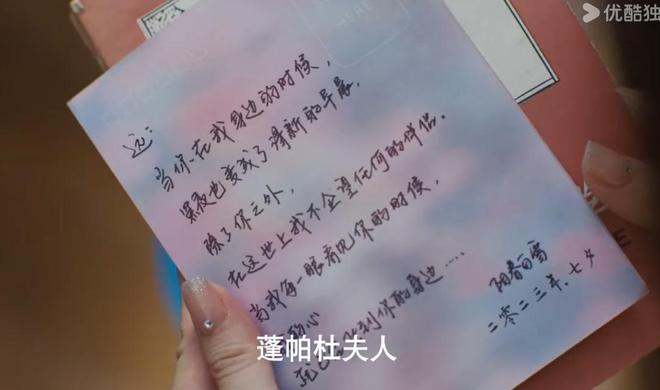 优酷独
远:
当你在我身边的时候,
黑夜也变成了清新的早晨,
除了你之外,
在这世上我不企望任何的伴侣。
当我每一眼看见你的时候,
的心
到你的身边……
阳春白雪
二零二三年、七夕
蓬帕杜夫人